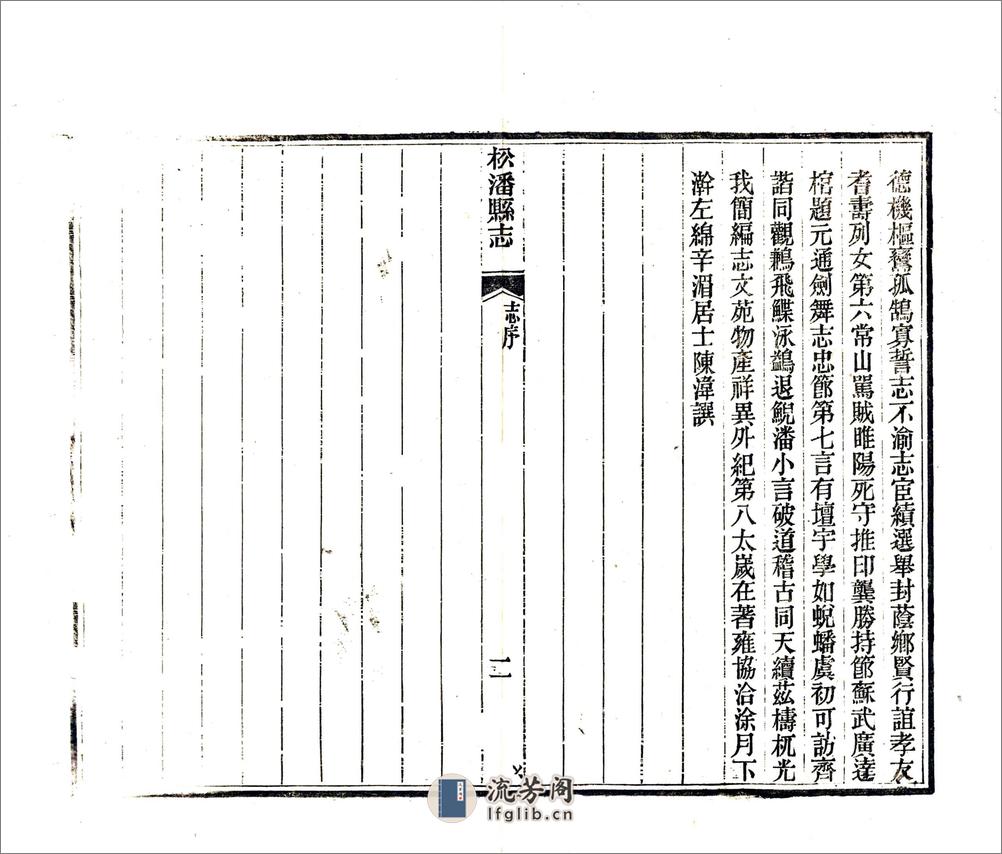 德機樞寶孤鵠寡誓志不渝志宦績選舉封蔭鄉賢行誼孝友
耆壽列女第六常山罵賊睢陽死守推印龔勝持節蘇武廣達
棺題元通劍舞志忠節第七言有壇宇學如蜺蟠虞初可訪齊
諧同觀鶼飛鰈泳鷁退鯢潘小言破道稽古同天續茲檮杌光
我簡編志文苑物產祥異外紀第八太歲在著雍協洽涂月下
澣左綿辛湄居士陳湋譔
松潘縣志
志序
二
流芳阁
lfglib.cn